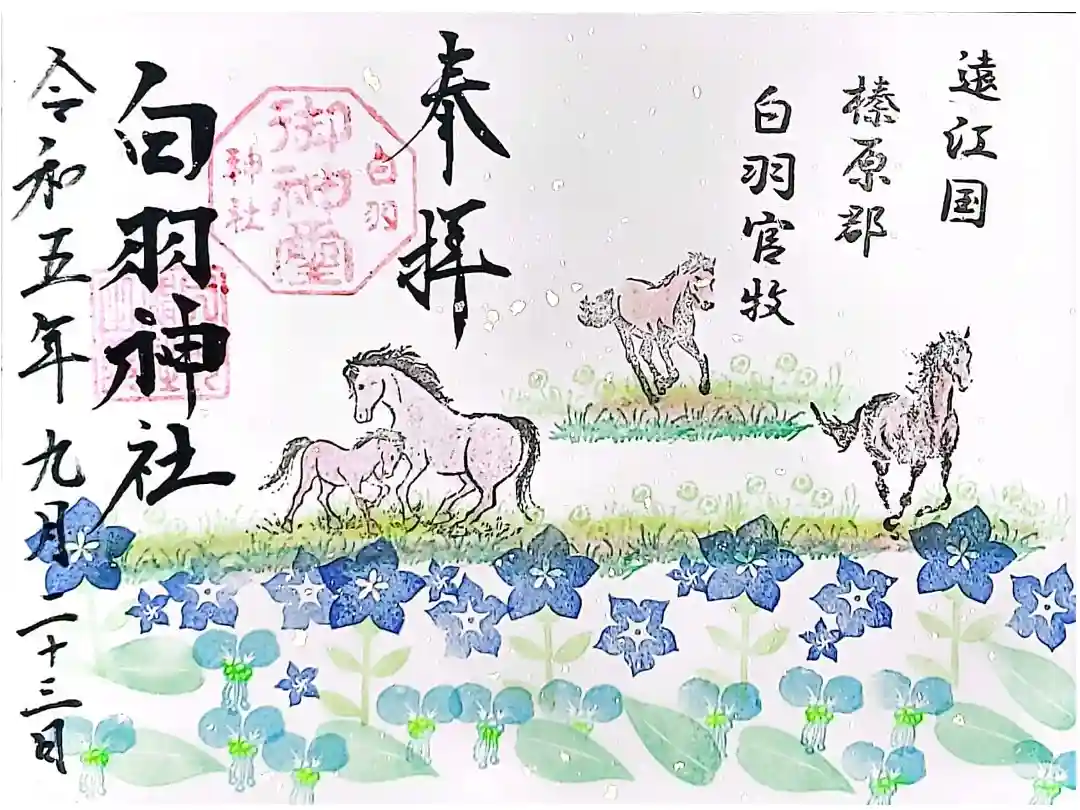 遠江国
榛原郡
白羽官牧
奉拝
白羽
御神霊
神社
白羽神社
令和五年九月二十三日